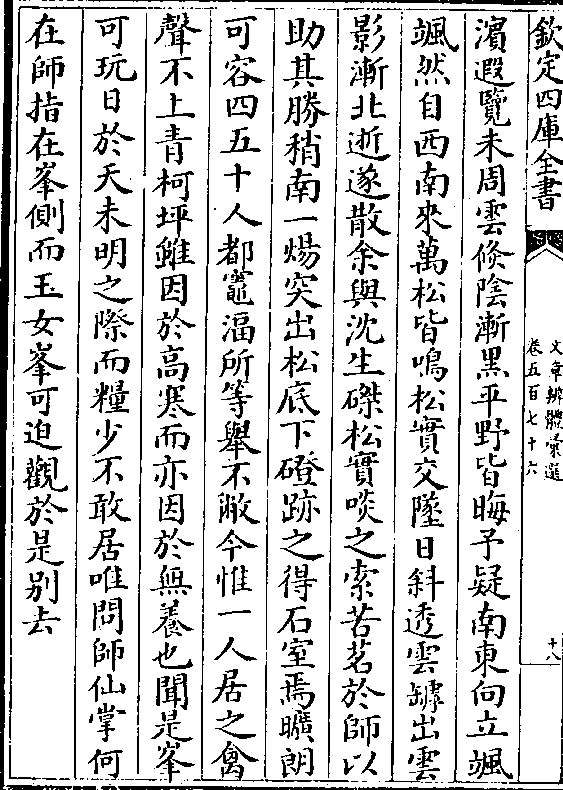 欽定四庫全書
文章辨體彙選
卷五百七十六
十八
濵遐覽未周雲倐陰漸黒平野皆晦予疑南東向立颯
颯然自西南來萬松皆鳴松實交墜日斜透雲罅出雲
影漸北逝遂散余與沈生磔松實啖之索苦茗於師以
助其勝稍南一煬突出松底下磴跡之得石室焉曠朗
可容四五十人都竈湢所等舉不敝今惟一人居之禽
聲不上青柯坪雖因於高寒而亦因於無養也聞是峯
可玩日於天未明之際而糧少不敢居唯問師仙掌何
在師指在峯側而玉女峯可迫觀於是别去